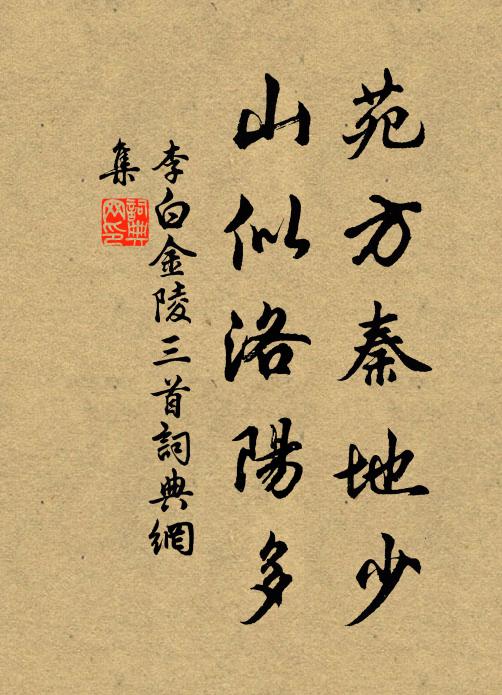 苑方秦地少
山似洛陽多
李白金陵三首詞典網
集
詞典網印